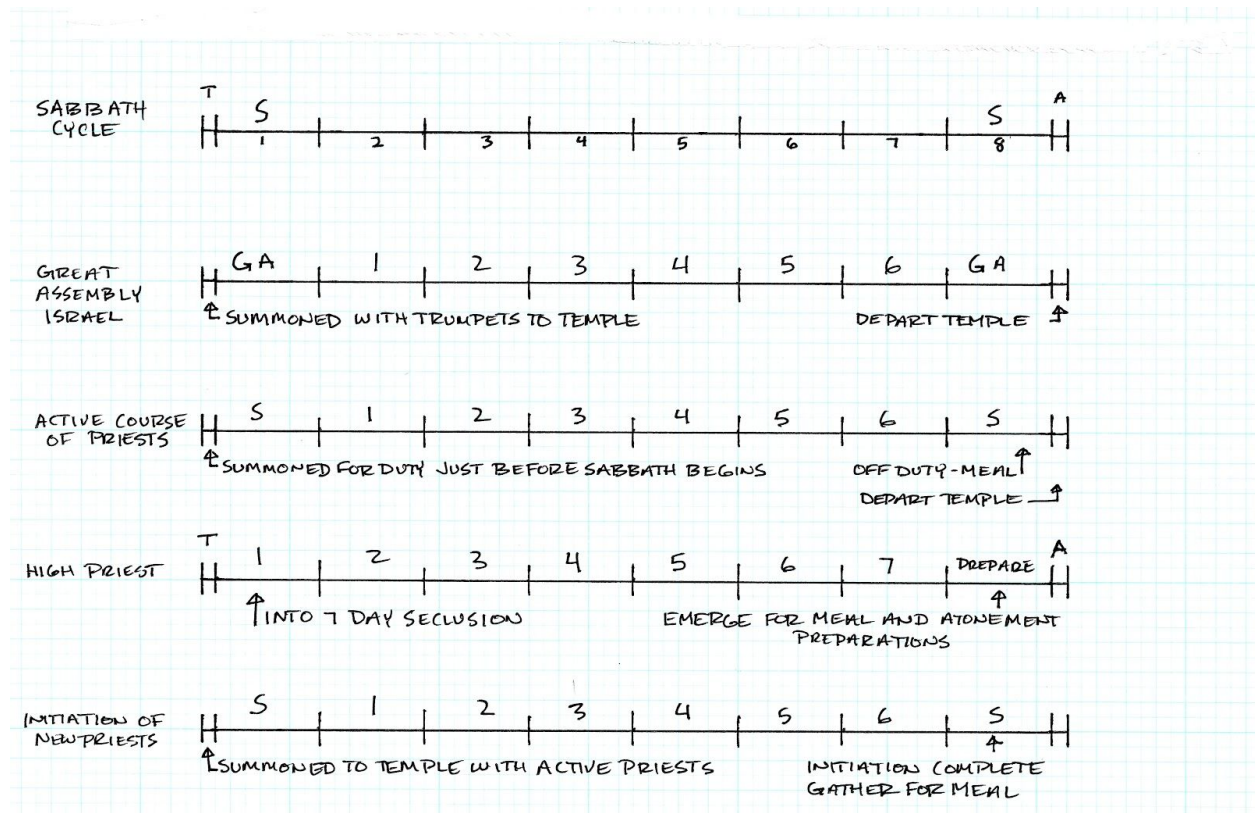 T A
SABBATH S S
CYCLE 1 2 3 4 5 6 7 8
GREAT GA 1 2 3 4 5 6 GA
ASSEMBLY
ISRAEL SUMMONED WITH TRUMPETS TO TEMPLE DEPART TEMPLE
ACTIVE COURSE S 1 2 3 4 5 6 S
OF PRIESTS
SUMMONED FOR DUTY JUST BEFORE SABBATH BEGINS OFF DUTY-MEAL
DEPART TEMPLE
T A
HIGH PRIEST 1 2 3 4 5 6 7 PREPARE
INTO 7 DAY SECLUSION EMERGE FOR MEAL AND ATONEMENT
PREPARATIONS
INITIATION OF S 1 2 3 4 5 6 S
NEW PRIESTS
SUMMONED TO TEMPLE WITH ACTIVE PRIESTS INITIATION COMPLETE
GATHER FOR MEAL